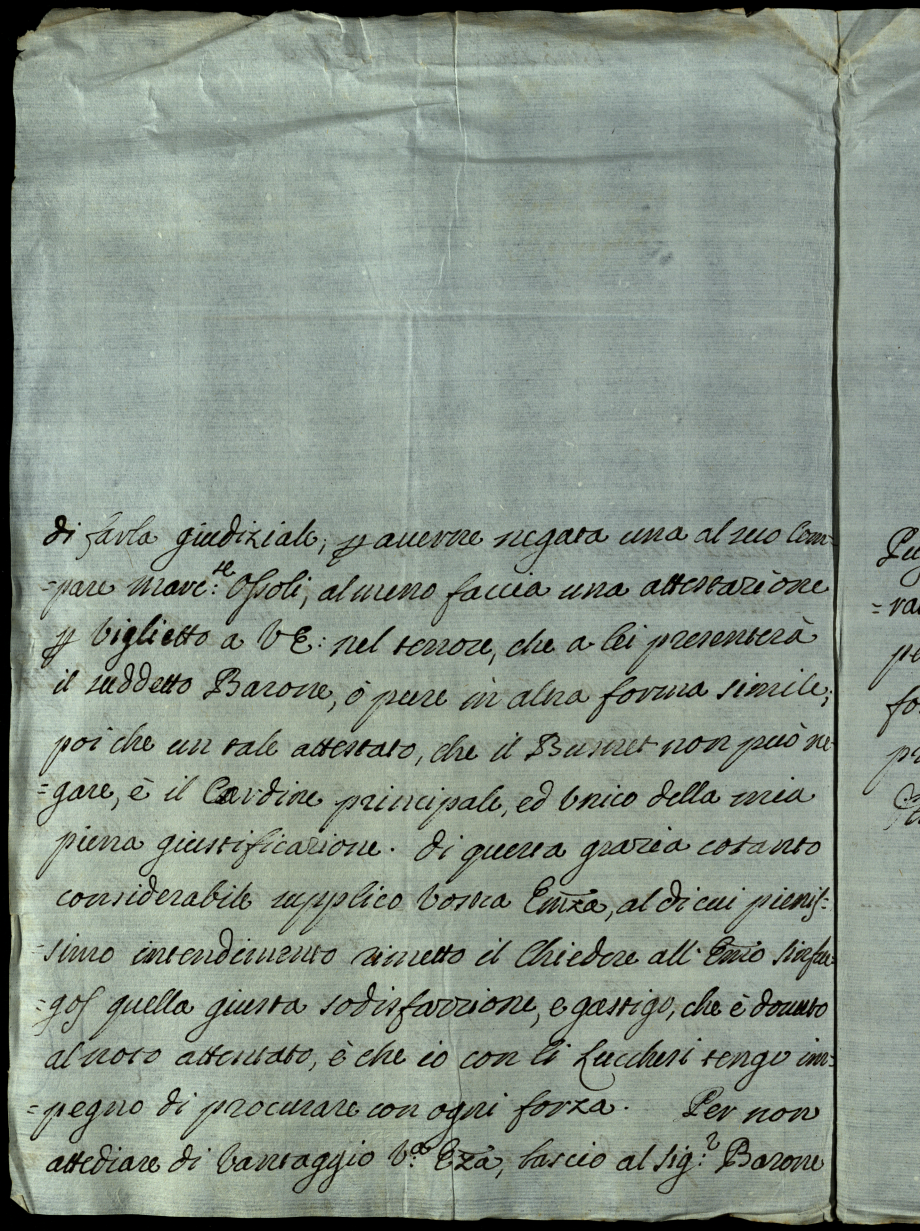 di farla giudiziale, p auerne negata una al suo Com=
=pare Marc:se Ossoli, almeno faccia una attestazione
p Viglietto a V E: nel tenore, che a lei presenterà
il suddetto Barone, ò pure in altra forma simile;
poi che un tale attestato, che il Busnet non può ne=
=gare, è il Cardine principale, ed Vnico della mia
piena giustificazione. di questa grazia cotanto
considerabile supplico Vostra Emza, al di cui pienis=
=simo intendimento rimetto il Chiedere all' Emo Sinfu=
=gos quella giusta sodisfazzione, e gastigo, che è douuto
al noto attentato, è che io con li Lucchesi tengo im=
=pegno di procurare con ogni forza. Per non
attediare di Vantaggio V:a Eza, lascio al Sig:r Barone
=